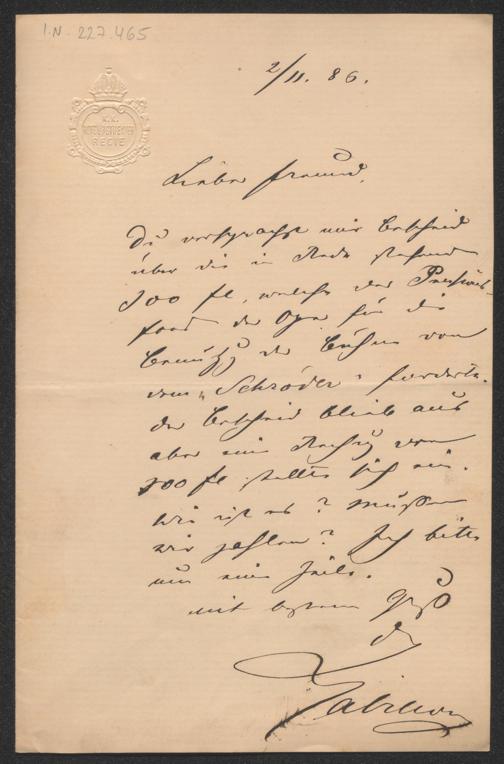 I.N. 227.465
K.K.
HOFBURGTHEATER
REGIE
2/11. 86.
Lieber Freund,
Du versprachst mir Bescheid
über die in Rede stehenden
100 fl, welche der Pensions-
fond der Oper für die
Benutzg der Bühne von
dem „Schröder" forderte.
der Bescheid blieb aus
aber eine Rechng von
100 fl stellte sich ein.
Wie ist es? Müssen
wir zahlen? Ich bitte
um eine Zeile.
mit bestem Gruß
Dein
Gabillon